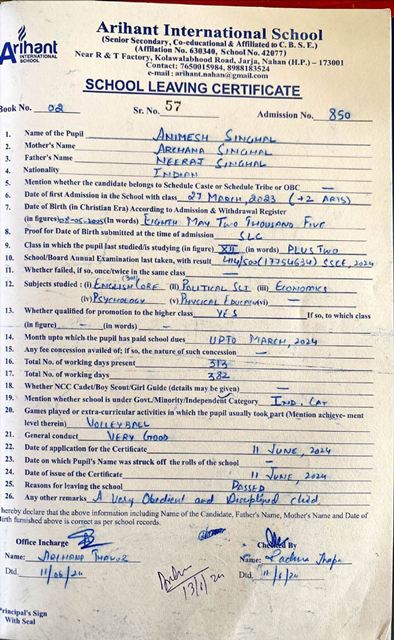 Arihant
INTERNATIONAL
SCHOOL
Arihant International School
(Senior Secondary, Co-educational & Affiliated to C. B. S. E.)
(Affiliation No. 630340, School No. 42077)
Near R & T Factory, Kolawalabhood Road, Jarja, Nahan (H.P.) – 173001
Contact: 7650015984, 8988183524
e-mail : arihant.nahan@gmail.com
SCHOOL LEAVING CERTIFICATE
Book No. 02 Sr. No. 57 Admission No. 850
1. Name of the Pupil ANIMESH SINGHAL
2. Mother's Name ARCHANA SINGHAL
3. Father's Name NEERAJ SINGHAL
4. Nationality INDIAN
5. Mention whether the candidate belongs to Schedule Caste or Schedule Tribe or OBC —
6. Date of first Admission in the School with class 27 MARCH, 2023 (+2 ARTS)
7. Date of Birth (in Christian Era) According to Admission & Withdrawal Register
(in figures) 08-05-2005 (In words) EIGHTH MAY TWO THOUSAND FIVE
8. Proof for Date of Birth submitted at the time of admission SLC
9. Class in which the pupil last studied/is studying (in figure) XII (in words) PLUS TWO
10. School/Board Annual Examination last taken, with result 414/500 (17754634) SSCE, 2024
11. Whether failed, if so, once/twice in the same class —
12. Subjects studied : (i) ENGLISH CORE (301) (ii) POLITICAL SCI (iii) ECONOMICS
(iv) PSYCHOLOGY (v) PHYSICAL EDUCATION (vi) —
13. Whether qualified for promotion to the higher class YES If so, to which class
(in figure) — (in words) —
14. Month upto which the pupil has paid school dues UPTO MARCH, 2024
15. Any fee concession availed of; if so, the nature of such concession —
16. Total No. of working days present 313
17. Total No. of working days 382
18. Whether NCC Cadet/Boy Scout/Girl Guide (details may be given) —
19. Mention whether school is under Govt./Minority/Independent Category IND. CAT
20. Games played or extra-curricular activities in which the pupil usually took part (Mention achieve- ment
level therein) VOLLEYBALL
21. General conduct VERY GOOD
22. Date of application for the Certificate 11 JUNE, 2024
23. Date on which Pupil's Name was struck off the rolls of the school —
24. Date of issue of the Certificate 11 JUNE, 2024
25. Reasons for leaving the school PASSED
26. Any other remarks A Very Obedient and Disciplined child
hereby declare that the above information including Name of the Candidate, Father's Name, Mother's Name and Date of
Birth furnished above is correct as per school records.
Office Incharge Checked By
Name: Name:
Dtd. 11/06/24 Dtd. 11/6/24
Principal's Sign
With Seal